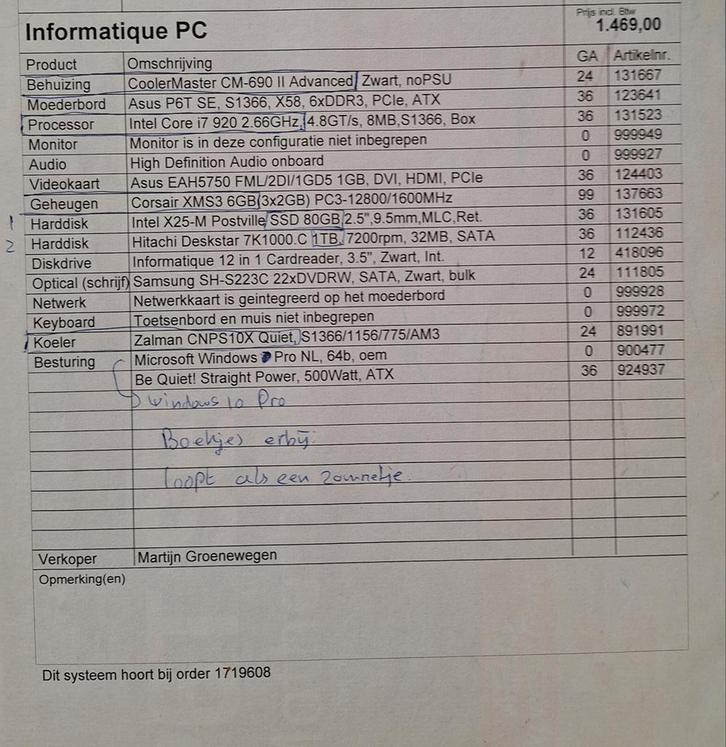 Prijs incl. Btw
Informatique PC 1.469,00
Product Omschrijving GA Artikelnr.
Behuizing CoolerMaster CM-690 II Advanced, Zwart, noPSU 24 131667
Moederbord Asus P6T SE, S1366, X58, 6xDDR3, PCIe, ATX 36 123641
Processor Intel Core i7 920 2.66GHz, 4.8GT/s, 8MB,S1366, Box 36 131523
Monitor Monitor is in deze configuratie niet inbegrepen 0 999949
Audio High Definition Audio onboard 0 999927
Videokaart Asus EAH5750 FML/2DI/1GD5 1GB, DVI, HDMI, PCIe 36 124403
Geheugen Corsair XMS3 6GB(3x2GB) PC3-12800/1600MHz 99 137663
1 Harddisk Intel X25-M Postville SSD 80GB 2.5",9.5mm,MLC,Ret. 36 131605
2 Harddisk Hitachi Deskstar 7K1000.C 1TB, 7200rpm, 32MB, SATA 36 112436
Diskdrive Informatique 12 in 1 Cardreader, 3.5", Zwart, Int. 12 418096
Optical (schrijf) Samsung SH-S223C 22xDVDRW, SATA, Zwart, bulk 24 111805
Netwerk Netwerkkaart is geintegreerd op het moederbord 0 999928
Keyboard Toetsenbord en muis niet inbegrepen 0 999972
Koeler Zalman CNPS10X Quiet, S1366/1156/775/AM3 24 891991
Besturing Microsoft Windows Pro NL, 64b, oem 0 900477
Be Quiet! Straight Power, 500Watt, ATX 36 924937
Windows 10 Pro
Boekjes erbij.
loopt als een zonnetje.
Verkoper Martijn Groenewegen
Opmerking(en)
Dit systeem hoort bij order 1719608